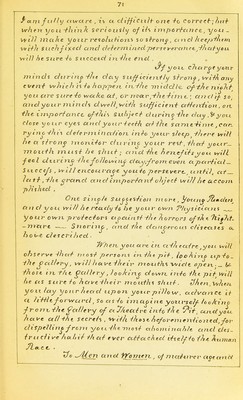 71
I am fully aware, is a difficult one to correct; but
when you think seriously of its importance, you
will make your resolutions so strong, and keep them
with such fixed and determined perseverance, that you
will be sure to succeed in the end.
If you charge your
minds during the day sufficiently strong, with any
event which is to happen, in the middle of the night,
you are sure to wake at, or near, the time; and if so,
and your minds dwell, with sufficient attention, on
the importance of this subject during the day, & you
close your eyes and your teeth at the same time, car-
rying this determination into your sleep, there will
be a strong monitor during your rest, that your
mouth must be shut; and the benefits you will
feel during the following day, from even a partial
success, will encourage you to persevere, until, at
last, the grand and important object will be accom
plished.
One single suggestion more, Young Reader
and you will be ready to be your own Physicians —
your own protectors against the horrors of the Night-
-mare — Snoring, and the dangerous diseases a
bove described.
When you are in a theatre, you will
observe that most persons in the pit, looking up to
the gallery, will have their mouths wide open; — &
those in the Gallery, looking down into the pit, will
be as sure to have their mouths shut. Then, when
you lay your head upon your pillow, advance it
a little forward, so as to imagine yourself looking
from the Gallery of a Theatre into the Pit, and you
have all the secrets, with those before mentioned, for
dispelling from you the most abominable and des-
tructive habit that ever attached itself to the human
Race.
To Men and Women, of maturer age and